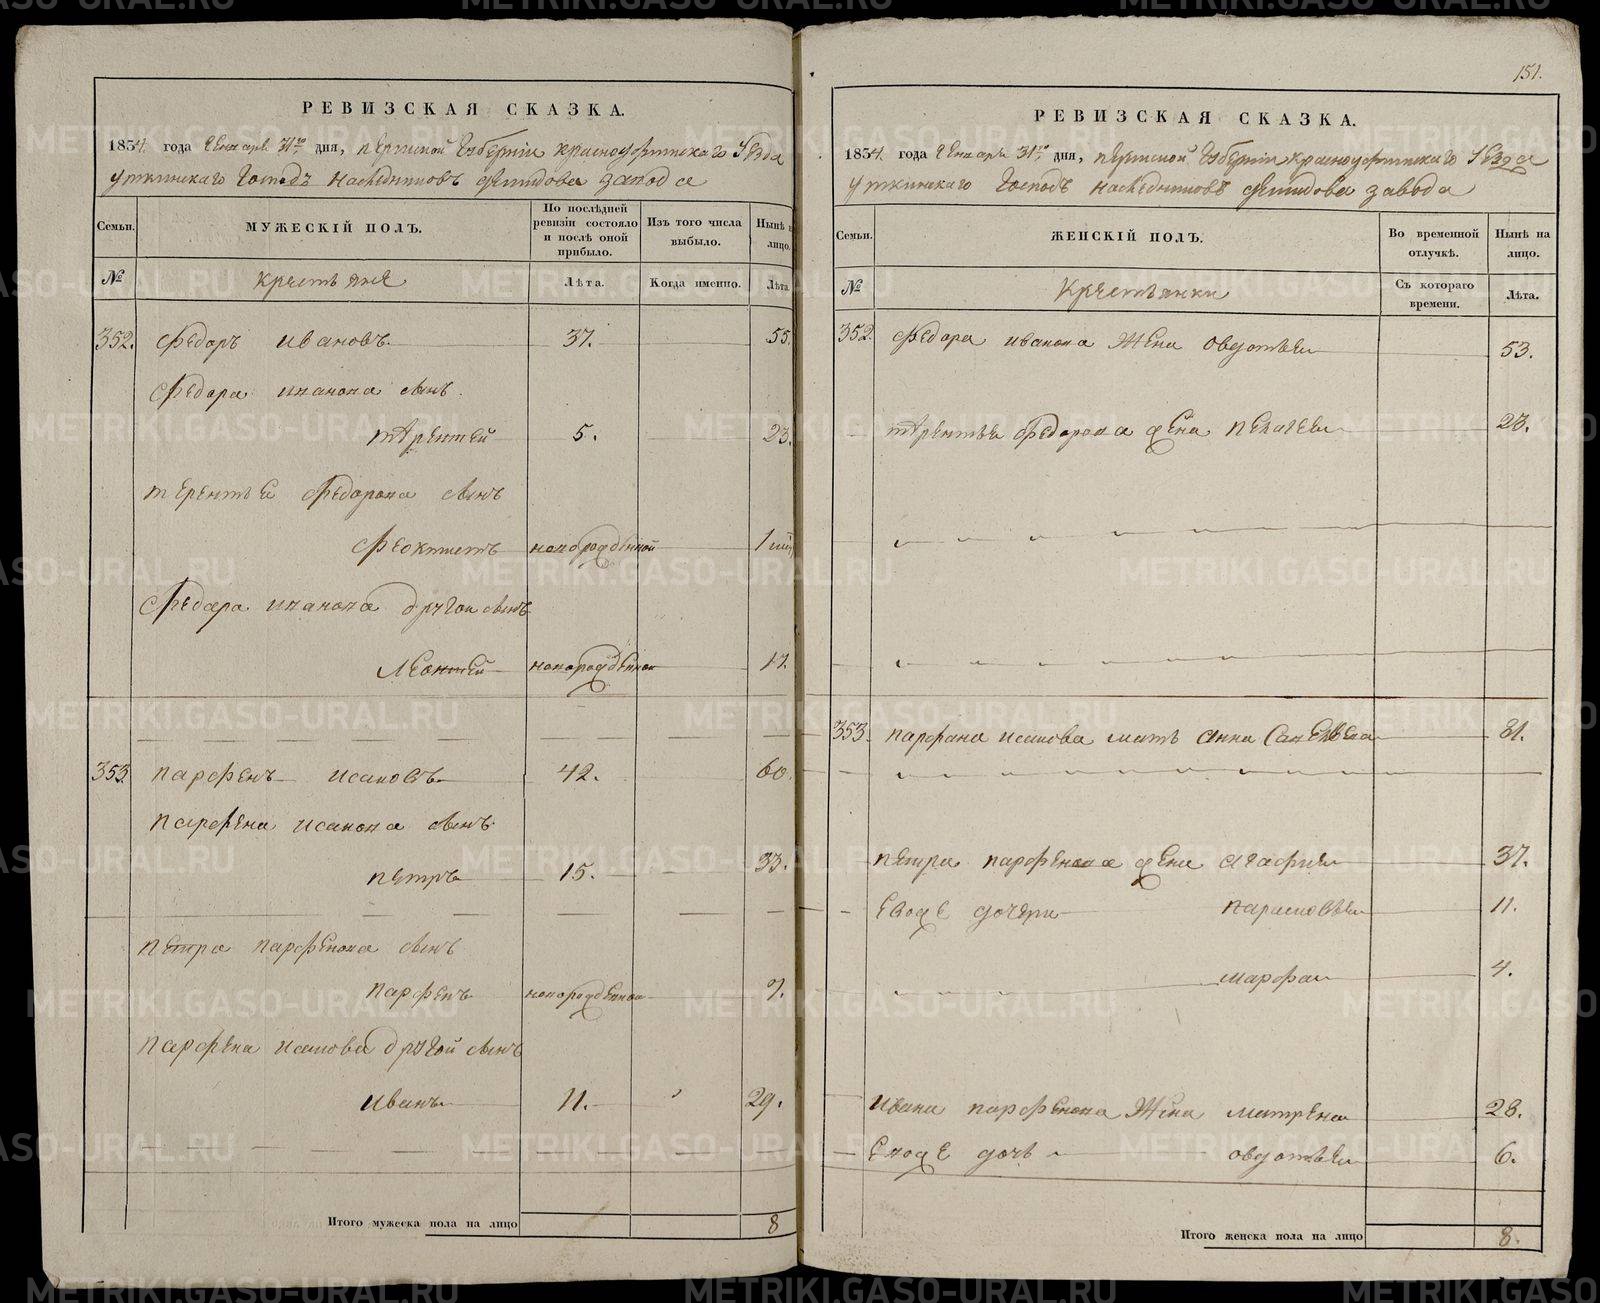 РЕВИЗСКАЯ СКАЗКА.
1834. года Генваря 31го дня, Пермской Губернии Красноуфимскаго Уезда
Уткинскаго Господъ наследниковъ Демидова завода
Семьи.
МУЖЕСКІЙ ПОЛЪ.
По послѣдней ревизіи состояло и послѣ оной прибыло.
Изъ того числа выбыло.
Нынѣ на лицо.
№
Крестьяне
Лѣта.
Когда именно.
Лѣта
352. Федоръ Ивановъ 37. 55.
Федора Иванова сынъ
Терентей 5. 23.
Терентья Федорова сынъ
Феоктистъ новорожденной 1
Федора Иванова другой сынъ
Леонтей новорожденной 17.
353. Парфенъ Исаковъ 42. 60.
Парфена Исакова сынъ
Петръ 15. 33.
Петра Парфенова сынъ
Парфенъ новорожденной 7.
Парфена Исакова другой сынъ
Иванъ 11. 29.
Итого мужеска пола на лицо 8
151.
РЕВИЗСКАЯ СКАЗКА.
1834. года Генваря 31го дня, Пермской Губернии Красноуфимскаго Уезда
Уткинскаго Господъ наследниковъ Демидова завода
Семьи.
ЖЕНСКІЙ ПОЛЪ.
Во временной отлучкѣ.
Нынѣ на лицо.
№
Крестьянки
Съ котораго времени.
Лѣта.
352. Федора Иванова жена Овдотья 53.
Терентья Федорова жена Пелагея 23.
353. Парфена Исакова мать Анна Савельева 81.
Петра Парфенова жена Агафья 37.
Ево же дочери Парасковья 11.
Марфа 4.
Ивана Парфенова жена Матрена 28.
Ево же дочь Овдотья 6.
Итого женска пола на лицо 8.
METRIKI.GASO-URAL.RU